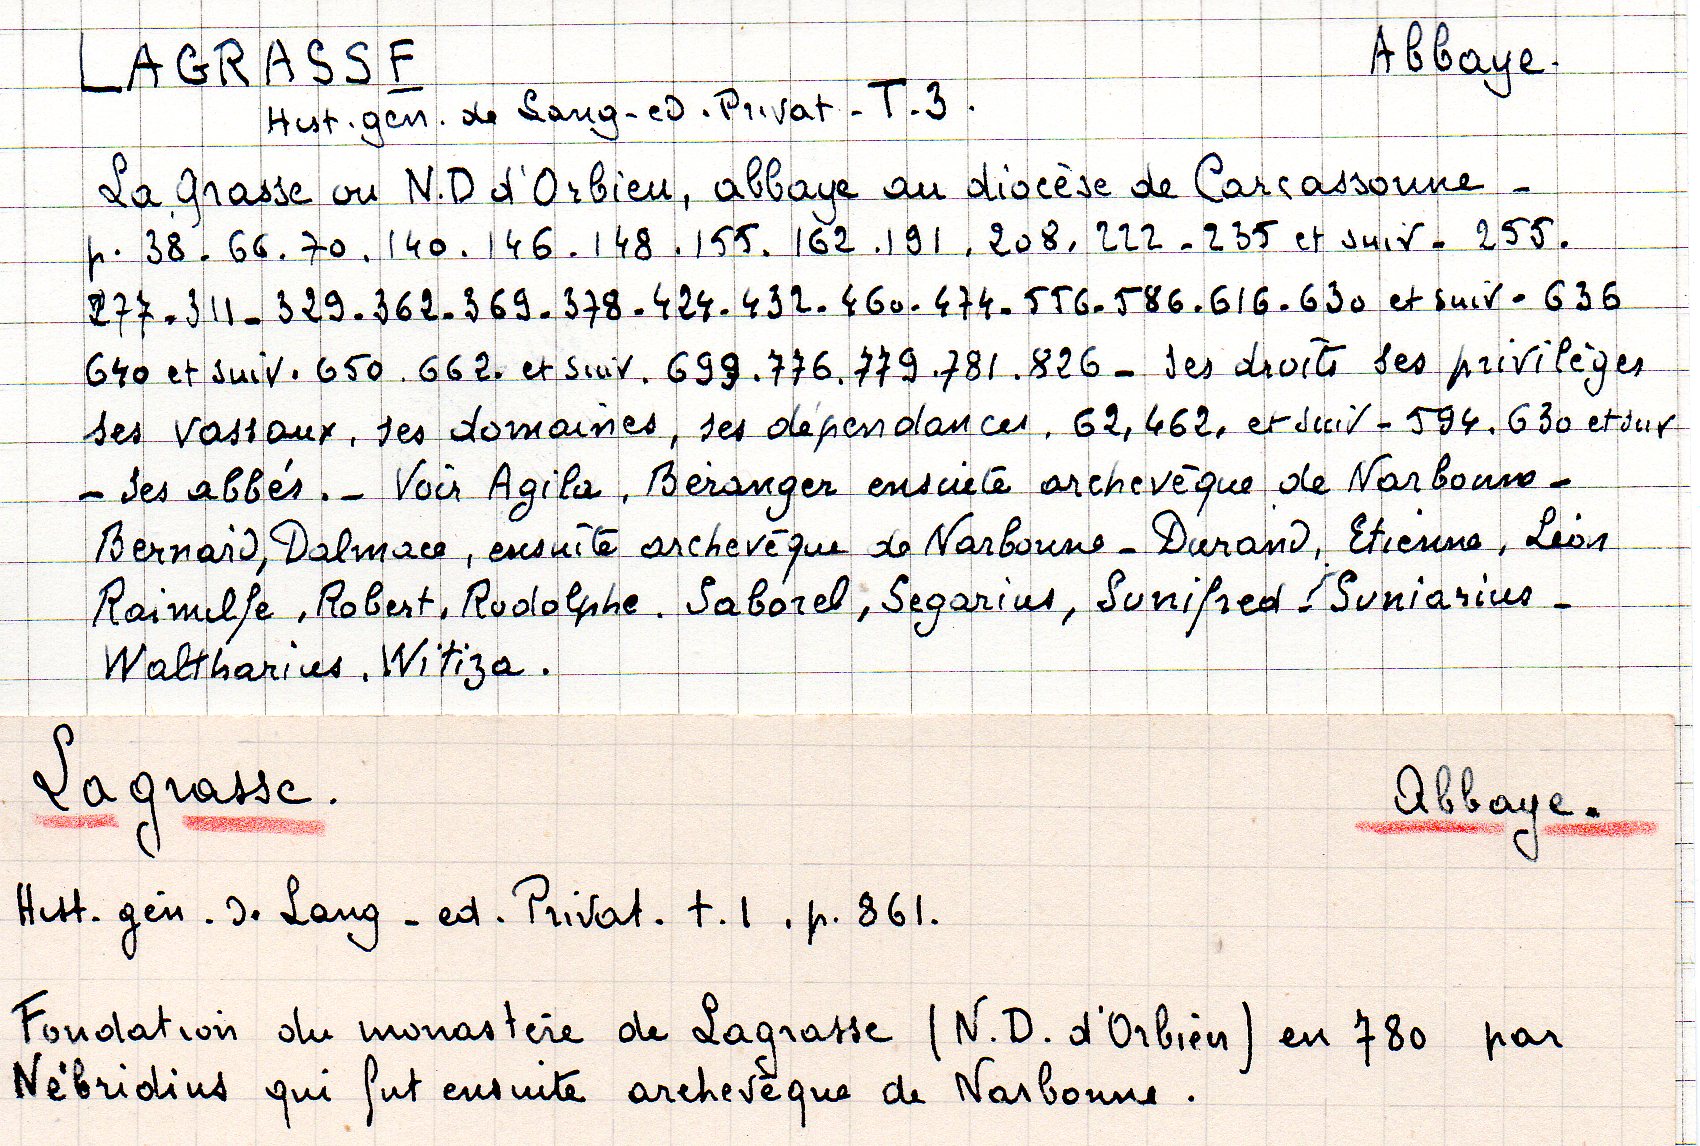 LAGRASSE
Abbaye.
Hist. gén. de Lang - ed. Privat - T. 3.
La Grasse ou N.D d'Orbieu, abbaye au diocèse de Carcassonne -
p. 38. 66. 70. 140. 146. 148. 155. 162. 191. 208. 222 - 235 et suiv. 255.
277. 311 - 329. 362. 369. 378. 424. 432. 460. 474. 556. 586. 616. 630 et suiv. 636
640 et suiv. 650. 662. et suiv. 699. 776. 779. 781. 826 - ses droits ses privilèges
ses vassaux, ses domaines, ses dépendances. 62, 462, et suiv - 594. 630 et suiv
- Ses abbés. - Voir Agila, Béranger ensuite archevêque de Narbonne -
Bernard, Dalmace, ensuite archevêque de Narbonne - Durand, Etienne, Léon
Raimulfe, Robert, Rodolphe. Saborel, Segarius, Sunifred - Suniarius -
Waltharius. Witiza.
Lagrasse.
Abbaye.
Hist. gén. de Lang - ed. Privat. t. 1. p. 861.
Fondation du monastère de Lagrasse (N.D. d'Orbieu) en 780 par
Nébridius qui fut ensuite archevêque de Narbonne.